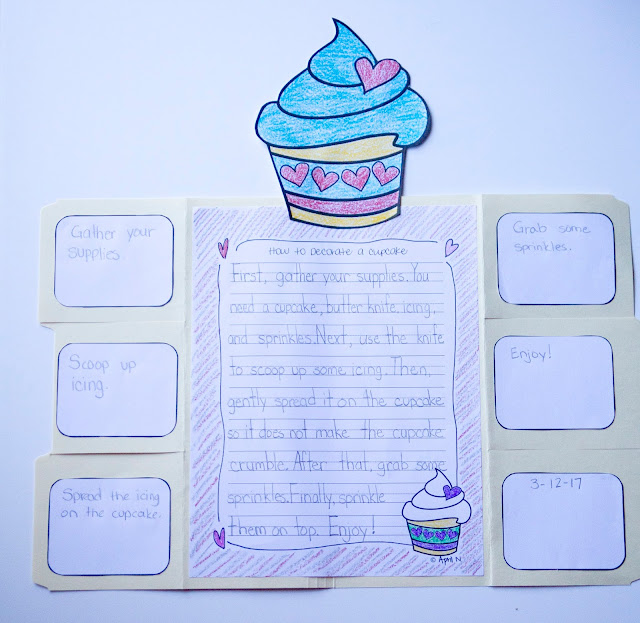 Gather your
supplies.
Scoop up
icing.
Spread the icing
on the cupcake.
How to Decorate a cupcake
First, gather your supplies. You
need a cupcake, butter knife, icing,
and sprinkles. Next, use the knife
to scoop up some icing. Then,
gently spread it on the cupcake
so it does not make the cupcake
crumble. After that, grab some
sprinkles. Finally, sprinkle
them on top. Enjoy!
© April N
Grab some
sprinkles.
Enjoy!
3-12-17